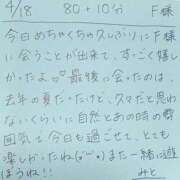 4/18 80+10分 F様
今日めちゃくちゃ久しぶりにF様
に会うことが出来て、すっごく嬉し
かったよ♡最後に会ったのは、
去年の夏だったけど、久々だと思わ
ないくらいに自然とあの時の雰
囲気で今日も過ごせて、とても
楽しかったね(๑˃̵ᴗ˂̵)また一緒に遊
ぼうね!!
みと